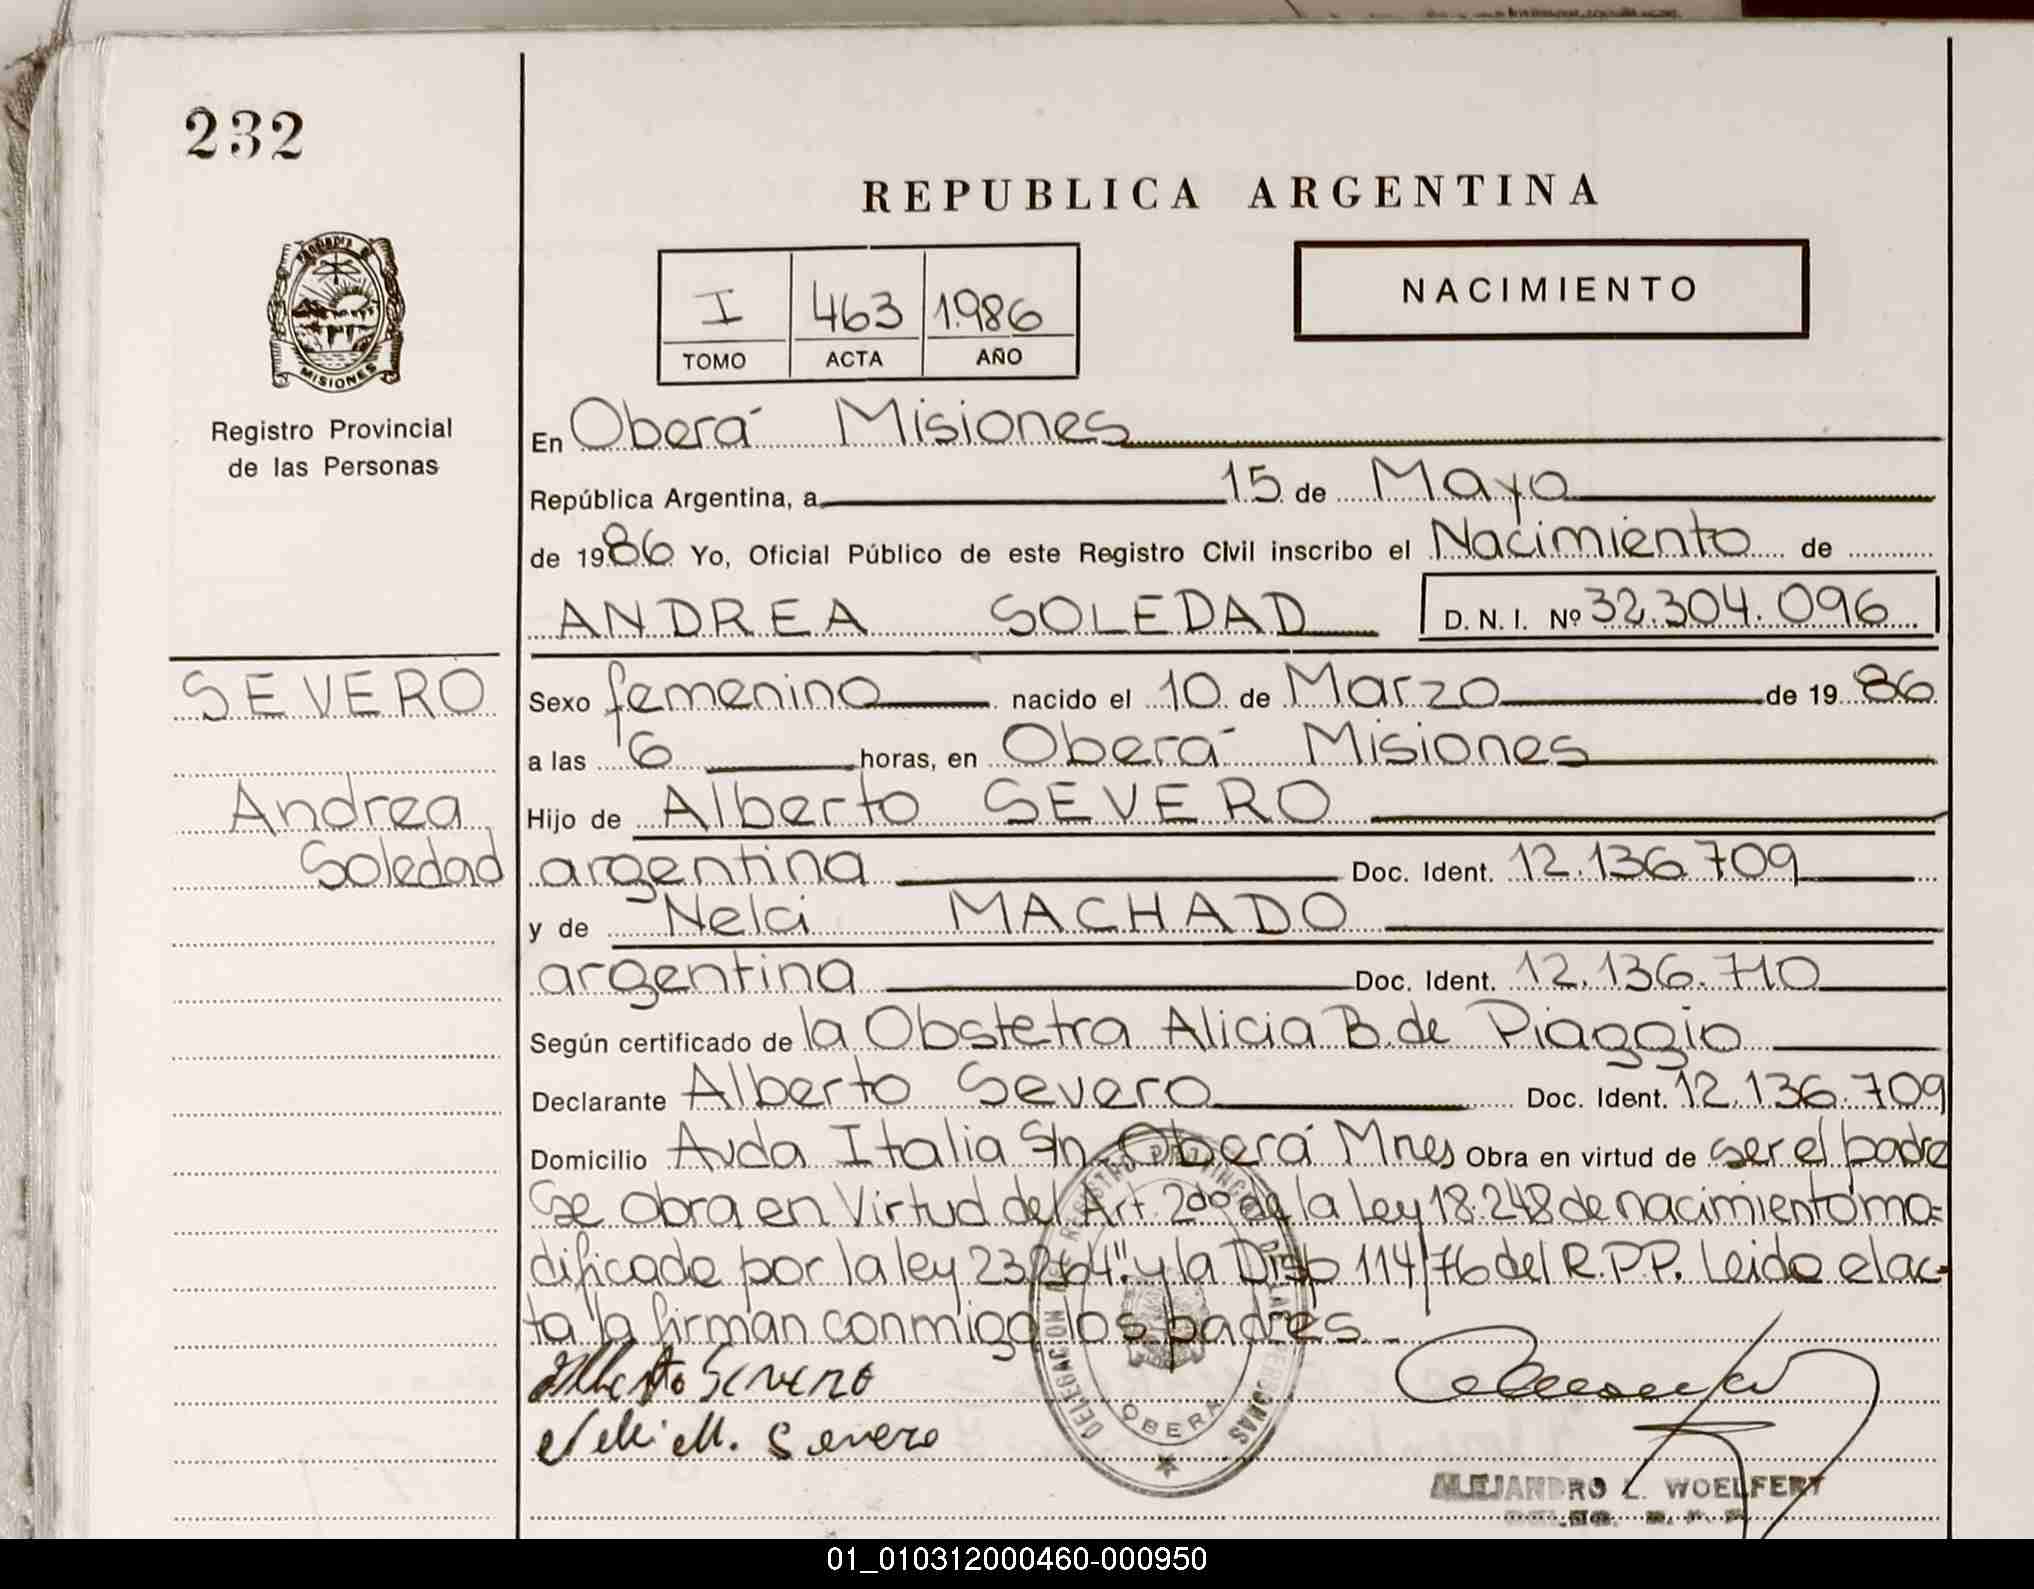 232
REPUBLICA ARGENTINA
NACIMIENTO
I 463 1.986
TOMO ACTA AÑO
MISIONES
Registro Provincial
de las Personas
En Oberá Misiones
República Argentina, a 15 de Mayo
de 1986 Yo, Oficial Público de este Registro Civil inscribo el Nacimiento de
ANDREA SOLEDAD D. N. I. Nº 32.304.096
SEVERO
Andrea
Soledad
Sexo femenino nacido el 10 de Marzo de 1986
a las 6 horas, en Oberá Misiones
Hijo de Alberto SEVERO
argentina Doc. Ident. 12.136.709
y de Nelci MACHADO
argentina Doc. Ident. 12.136.710
Según certificado de la Obstetra Alicia B. de Piaggio
Declarante Alberto Severo Doc. Ident. 12.136.709
Domicilio Avda Italia S/n Oberá Mnes Obra en virtud de ser el padre
Se obra en Virtud del Art. 2do de la Ley 18.248 de nacimiento mo=
dificado por la ley 23.264" y la Disp 114/76 del R.P.P. Leido el ac-
ta la firman conmigo los padres
Alberto Severo
Nelci M. Severo
DELEGACION REGISTRO PROVINCIAL PERSONAS
OBERA
ALEJANDRO L. WOELFERT
01_010312000460-000950